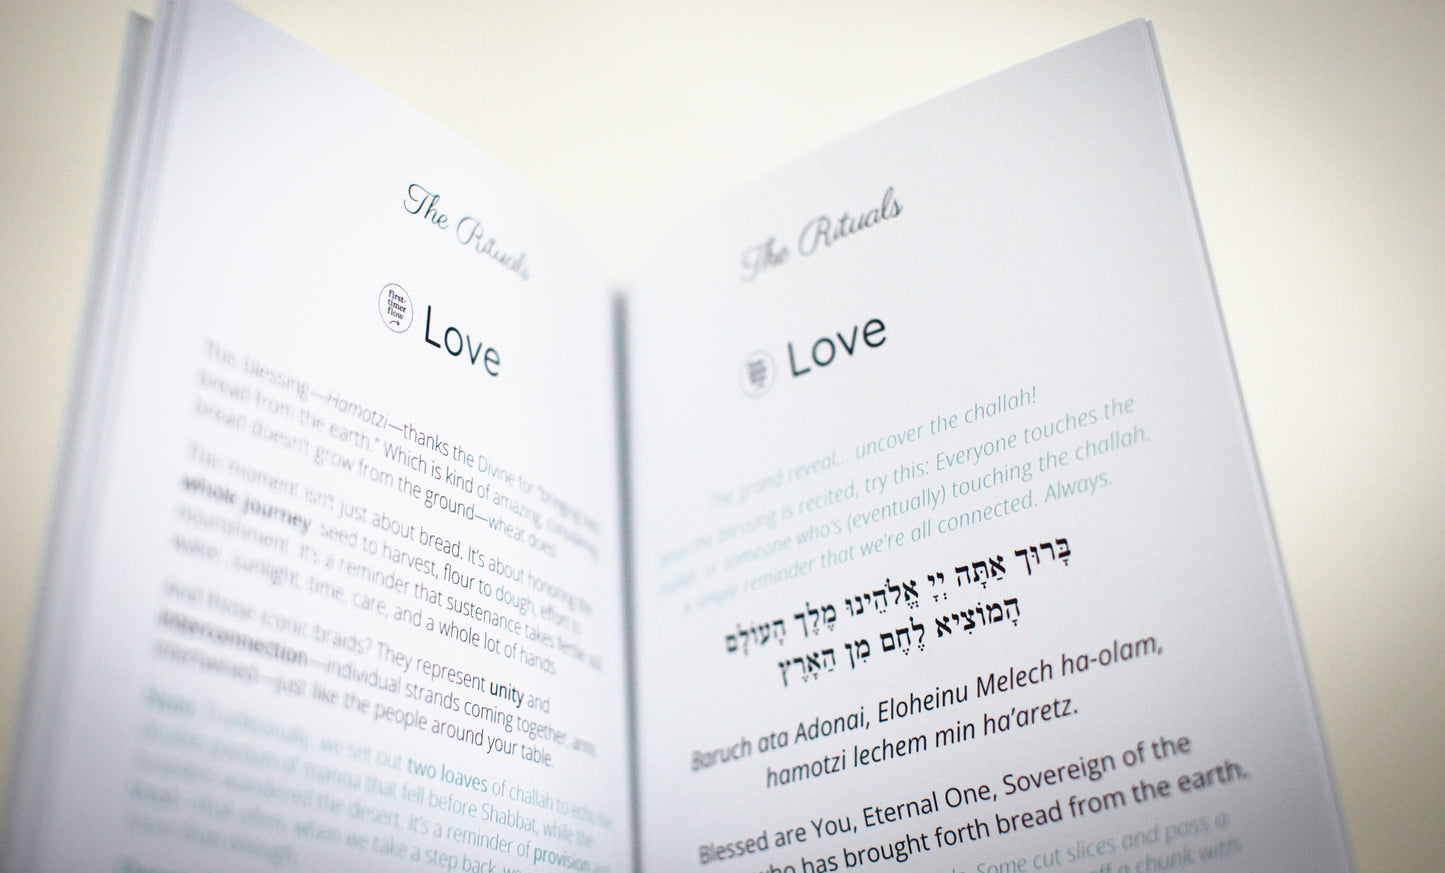 The Rituals
first-
timer
flow
Love
The blessing—Hamotzi—thanks the Divine for "bringing
bread from the earth." Which is kind of amazing, considering
bread doesn't grow from the ground—wheat does!
The moment isn't just about bread. It's about honoring the
whole journey: seed to harvest, flour to dough, effort to
nourishment. It's a reminder that sustenance takes
water, sunlight, time, care, and a whole lot of hands.
And those iconic braids? They represent unity and
interconnection—individual strands coming together, arms
intertwined—just like the people around your table.
Traditionally, we set out two loaves of challah to echo the
double portion of manna that fell before Shabbat, while the
wandered the desert. It's a reminder of provision
when we take a step back, we
more than enough.
The Rituals
Love
The grand reveal... uncover the challah!
the blessing is recited, try this: Everyone touches the
challah, or someone who's (eventually) touching the challah.
A simple reminder that we're all connected. Always.
בָּרוּךְ אַתָּה יְיָ אֱלֹהֵינוּ מֶלֶךְ הָעוֹלָם
הַמּוֹצִיא לֶחֶם מִן הָאָרֶץ
Baruch ata Adonai, Eloheinu Melech ha-olam,
hamotzi lechem min ha'aretz.
Blessed are You, Eternal One, Sovereign of the
who has brought forth bread from the earth.
Some cut slices and pass a
off a chunk with